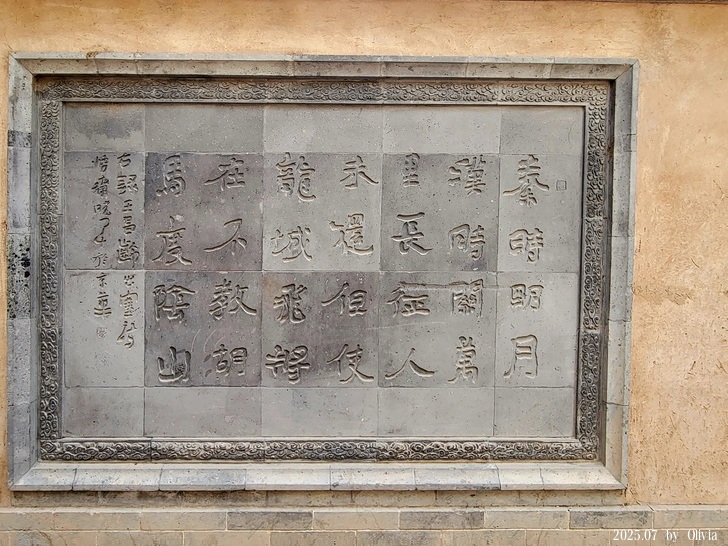 秦時明月
漢時關萬
里長征人
未還但使
龍城飛將
在不教胡
馬度陰山
右錄王昌齡出塞詩
2025.07 by Olivia